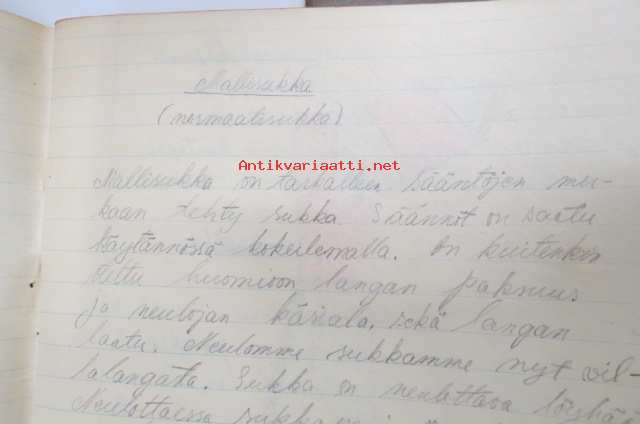 Mallisukka
(normaalisukka)
Antikvariaatti.net
Mallisukka on tarkkailun sääntöjen mu-
kaan tehty sukka. Säännöt on saatu
käytännössä kokeilemalla. On kuitenkin
otettu huomioon langan paksuus
ja neulojan käsiala, sekä langan
laatu. Neulomme sukkamme nyt vil-
lalangata. Sukka on neulottava löyhää
Neulottaessa sukka